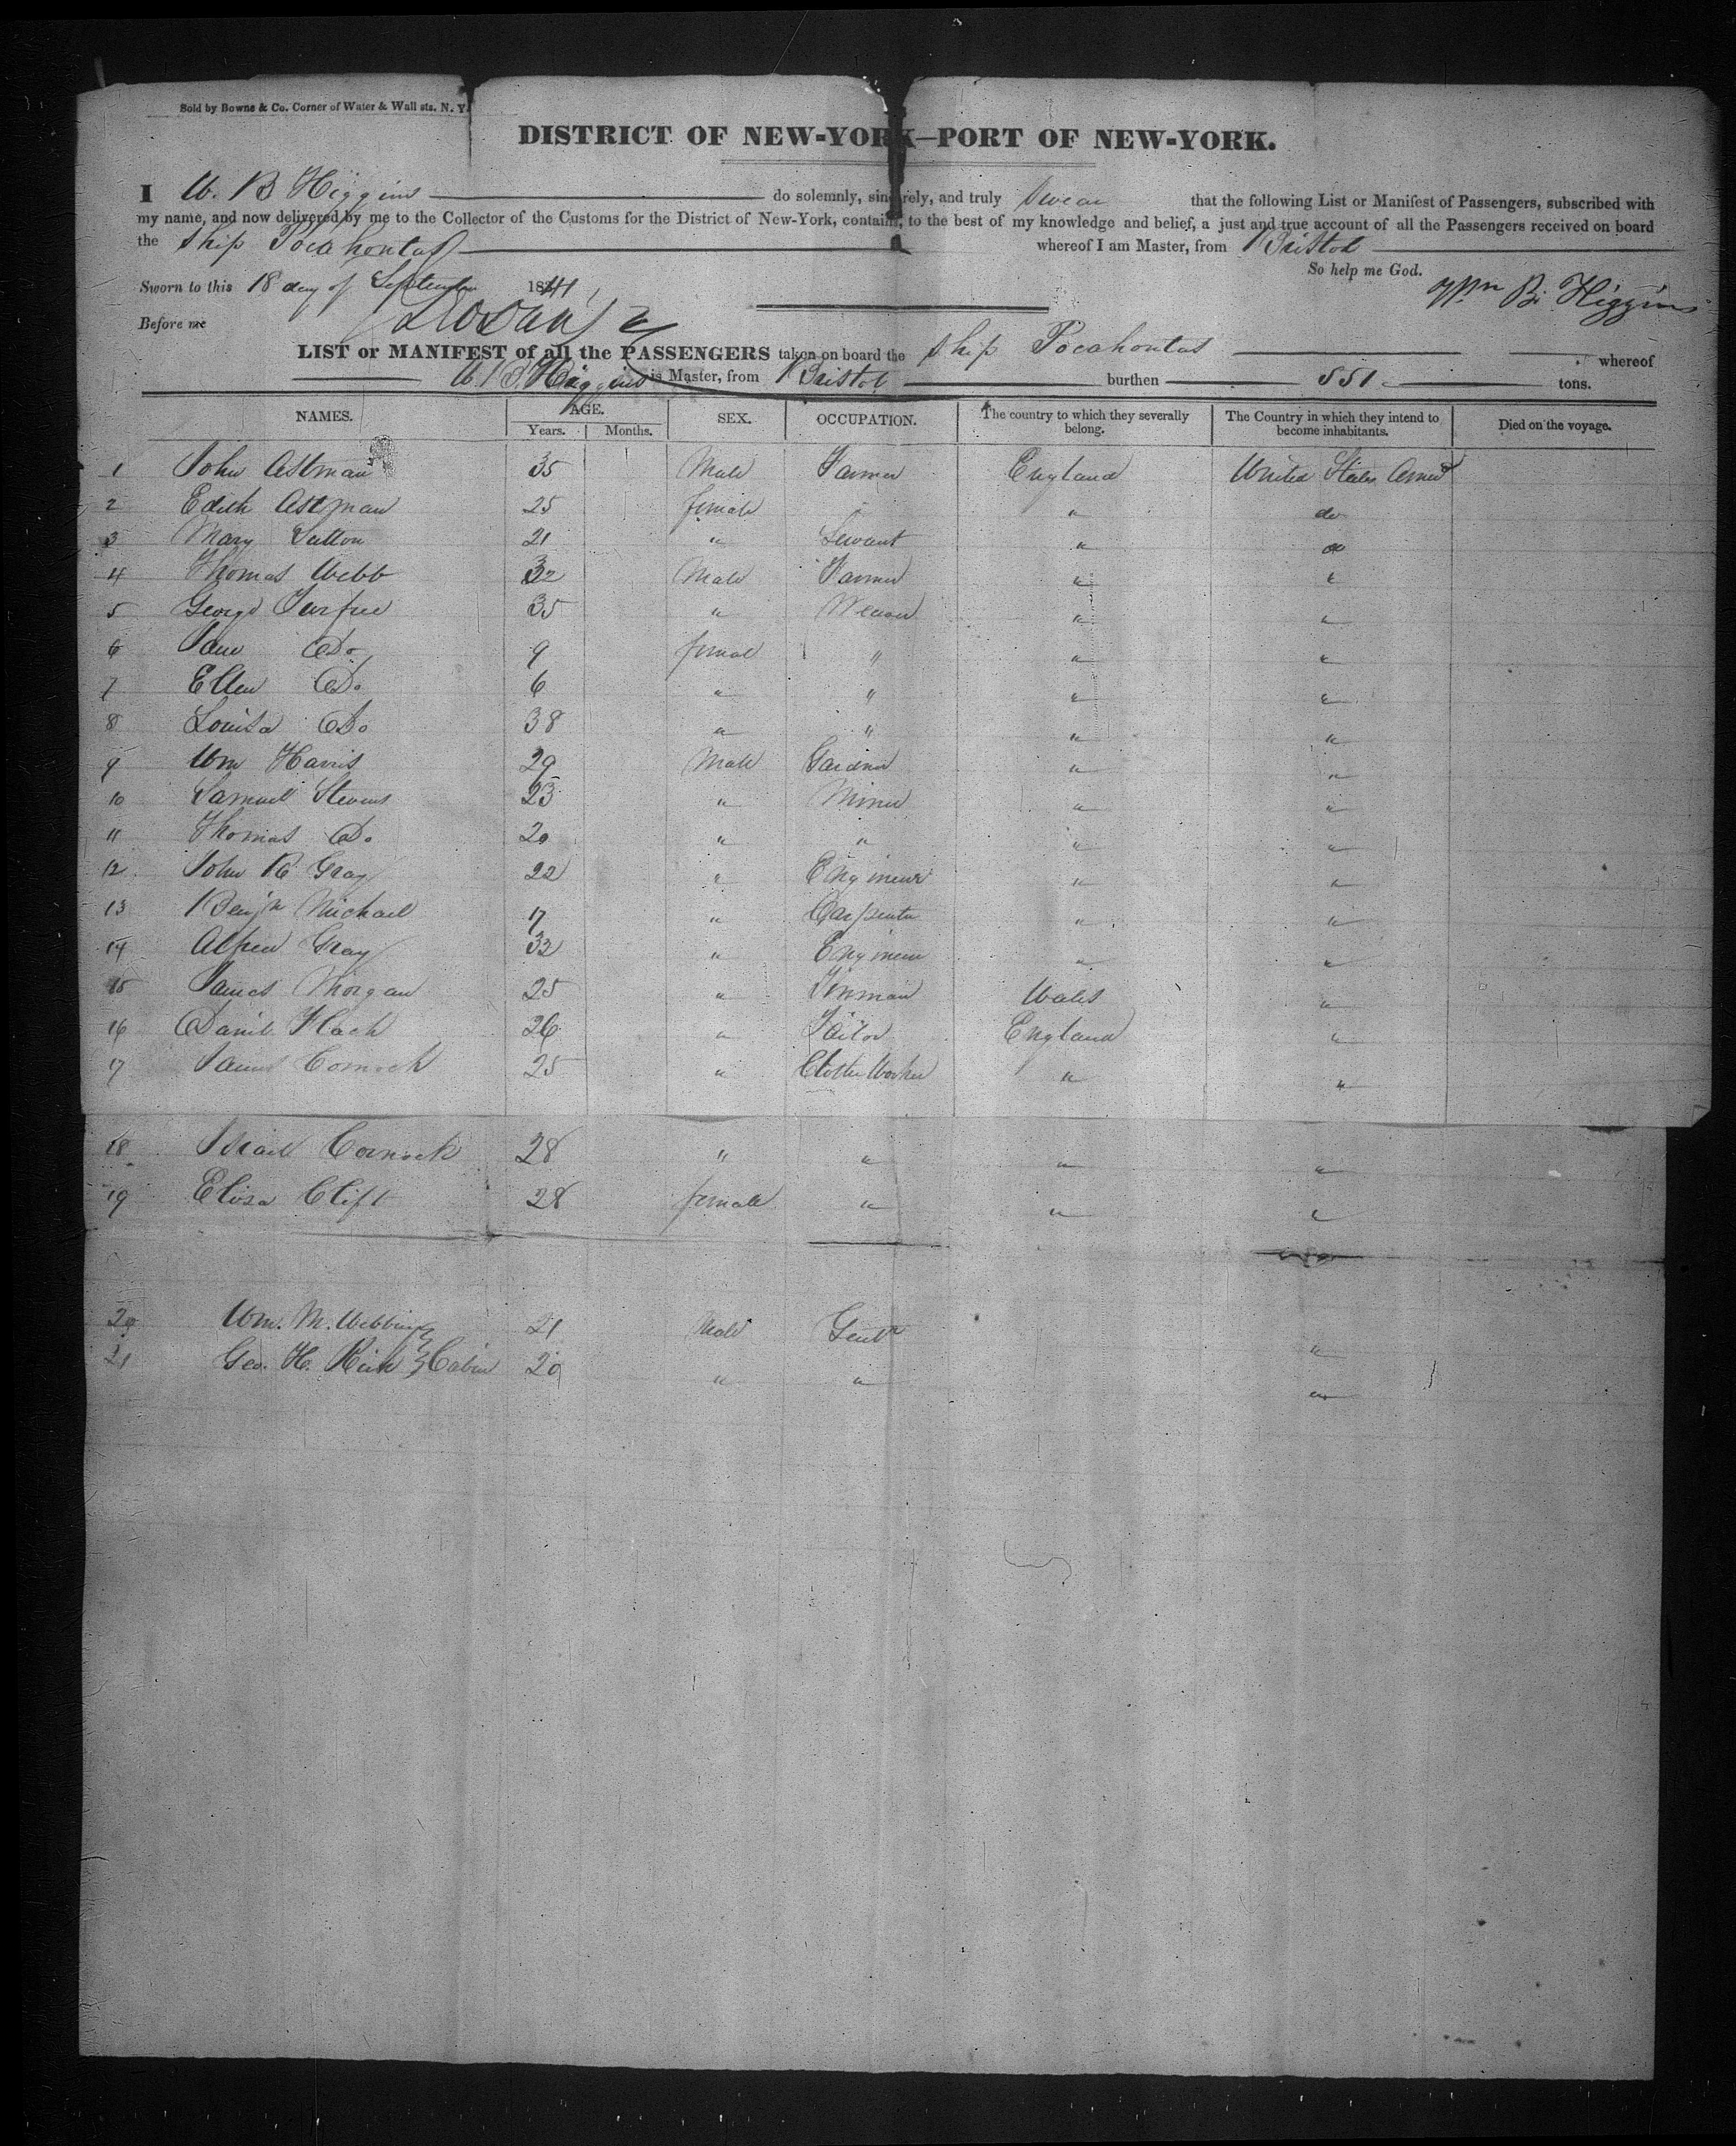 Sold by Bowne & Co. Corner of Water & Wall sts. N. Y.
DISTRICT OF NEW-YORK—PORT OF NEW-YORK.
I W. B Higgins do solemnly, sincerely, and truly swear that the following List or Manifest of Passengers, subscribed with
my name, and now delivered by me to the Collector of the Customs for the District of New-York, contains, to the best of my knowledge and belief, a just and true account of all the Passengers received on board
the Ship Pocahontas whereof I am Master, from Bristol
So help me God.
Sworn to this 18 day of September 1841 Wm B. Higgins
Before me
LIST or MANIFEST of all the PASSENGERS taken on board the Ship Pocahontas whereof
W. B. Higgins is Master, from Bristol burthen 551 tons.
NAMES. AGE. SEX. OCCUPATION. The country to which they severally belong. The Country in which they intend to become inhabitants. Died on the voyage.
Years. Months.
1 John Astman 35 Male Farmer England United States
2 Edith Astman 25 female " do
3 Mary Sutton 21 " Servant " do
4 Thomas Webb 32 Male Farmer " "
5 George 35 " " "
6 Jane Do 9 female " " "
7 Ellen Do 6 " " " "
8 Louisa Do 38 " " " "
9 Wm Harris 29 Male Gardner " "
10 Samuel Stevens 23 " Miner " "
11 Thomas Do 20 " " " "
12 John R Gray 22 " Engineer " "
13 Benjn Michael 17 " Carpenter " "
14 Alfred Gray 32 " Engineer " "
15 James Morgan 25 " Tinman Wales "
16 Daniel Flack 26 " Tailor England "
17 James Cornock 25 " Cloth Worker " "
18 Israel Cornock 28 " " " "
19 Eliza Clift 28 female " " "
20 Wm. M. Webbing 21 Male Gentn "
21 Geo. H. Rich Cabin 20 " " "